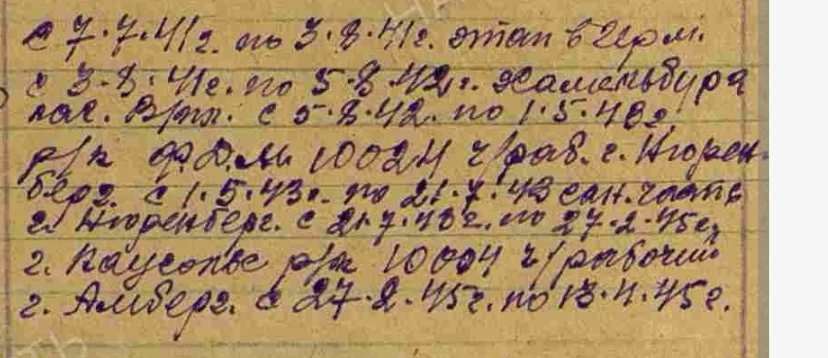 с 7·7·41г. по 3·8·41г. этап в Герм.
с 3·8·41г. по 5·8·42г. Хамельбург
лаг. В/пл. с 5·8·42. по 1·5·43г.
р/к 10024 ч/раб. г. Нюрен-
берг. с 1·5·43г. по 21·7·43 сан.часть
г. Нюренберг. с 21·7·43г. по 27·2·45г.
г. р/к 10004 ч/рабочий
г. Амберг. с 27·2·45г. по 13·4·45г.